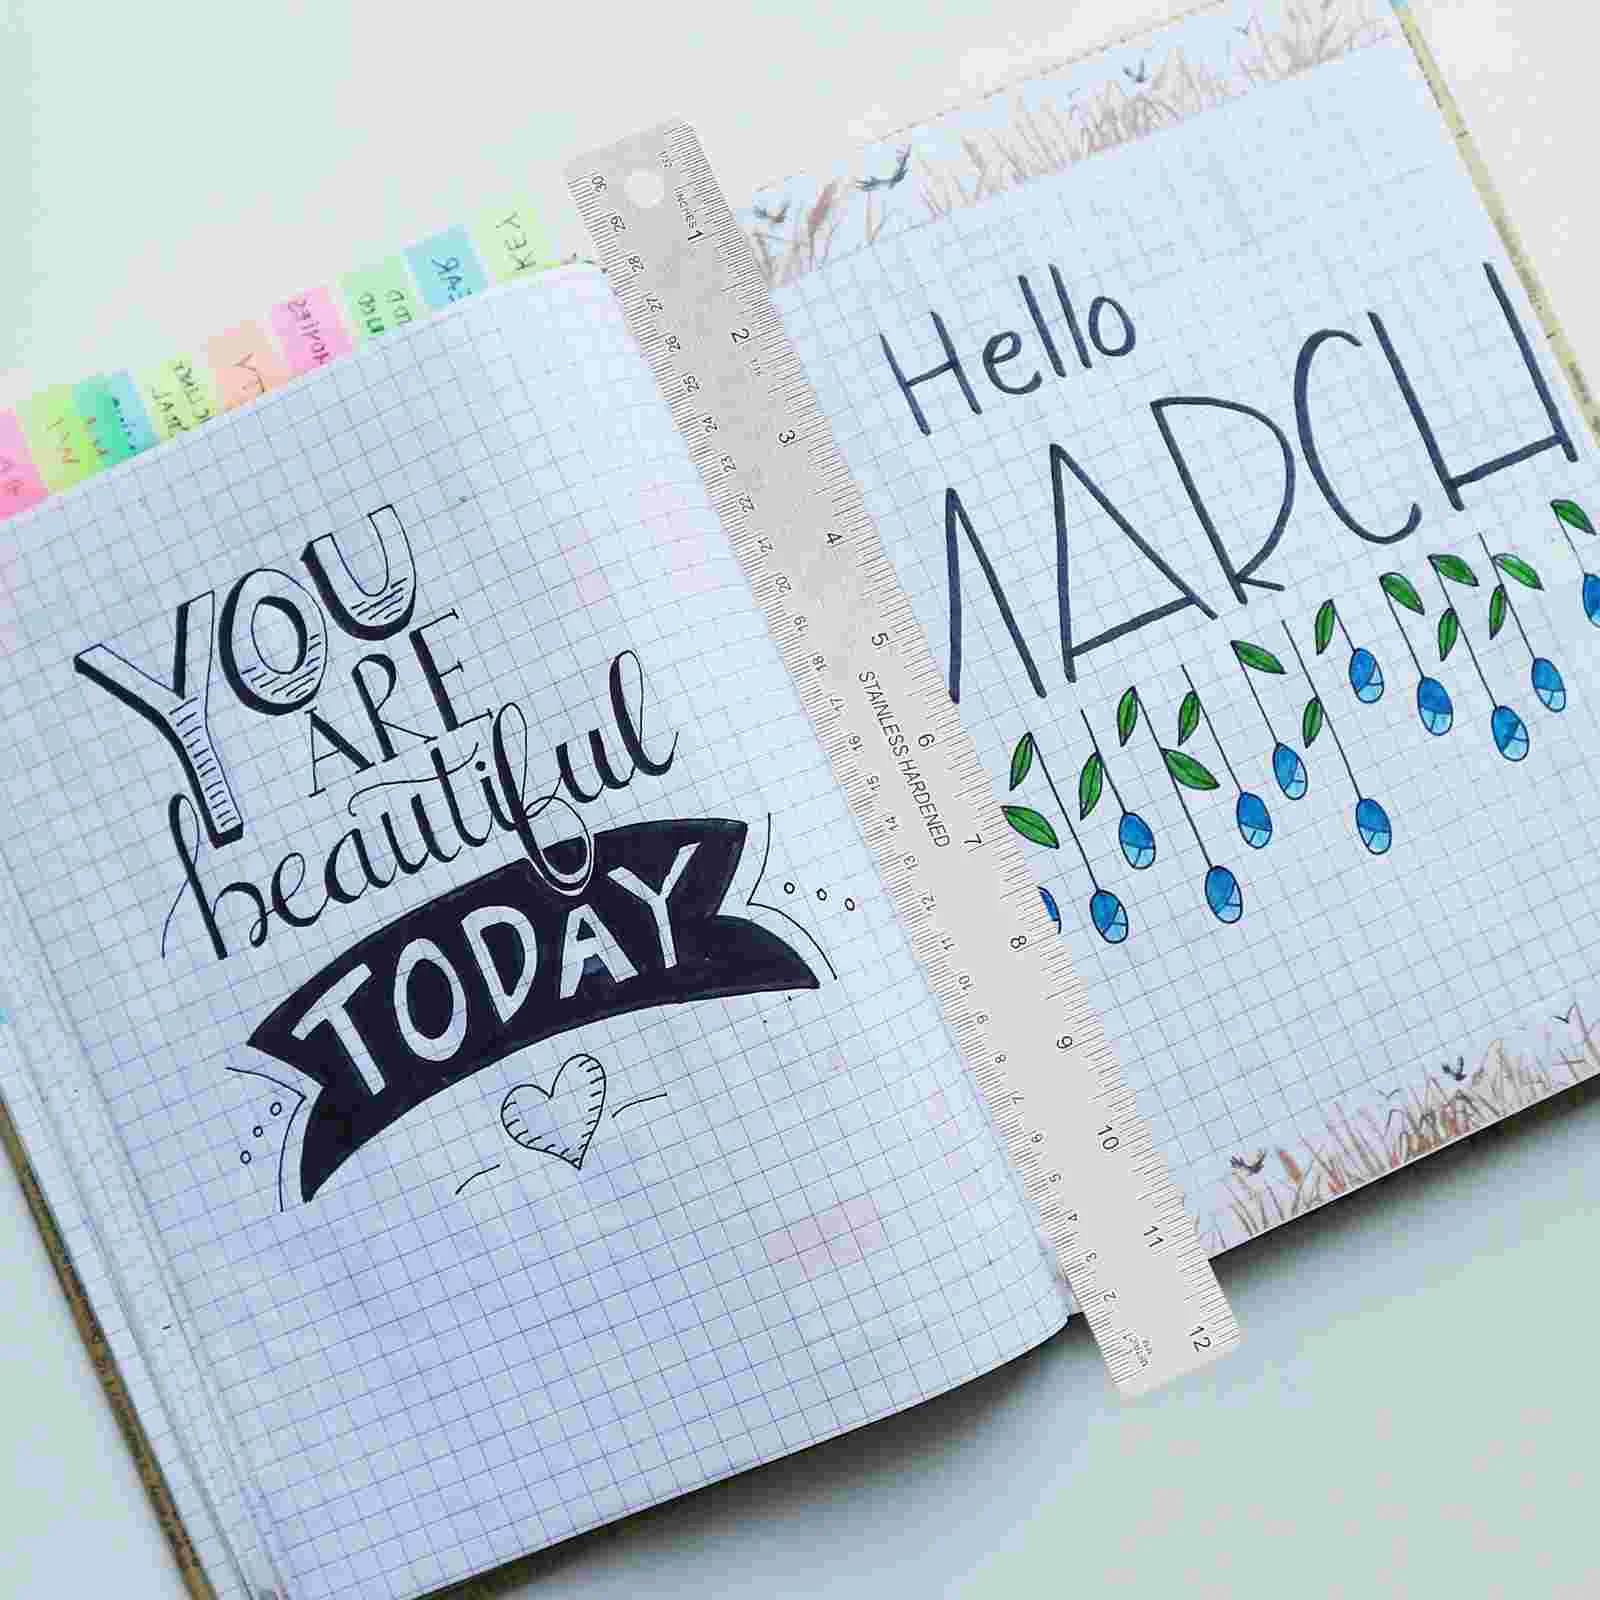 YOU
ARE
beautiful
TODAY
Hello
MARCH
KEY
INCHES
1
2
3
4
5
6
7
8
9
10
11
12
STAINLESS HARDENED
30
29
28
27
26
25
24
23
22
21
20
19
18
17
16
15
14
13
12
11
10
9
8
7
6
5
4
3
2
1